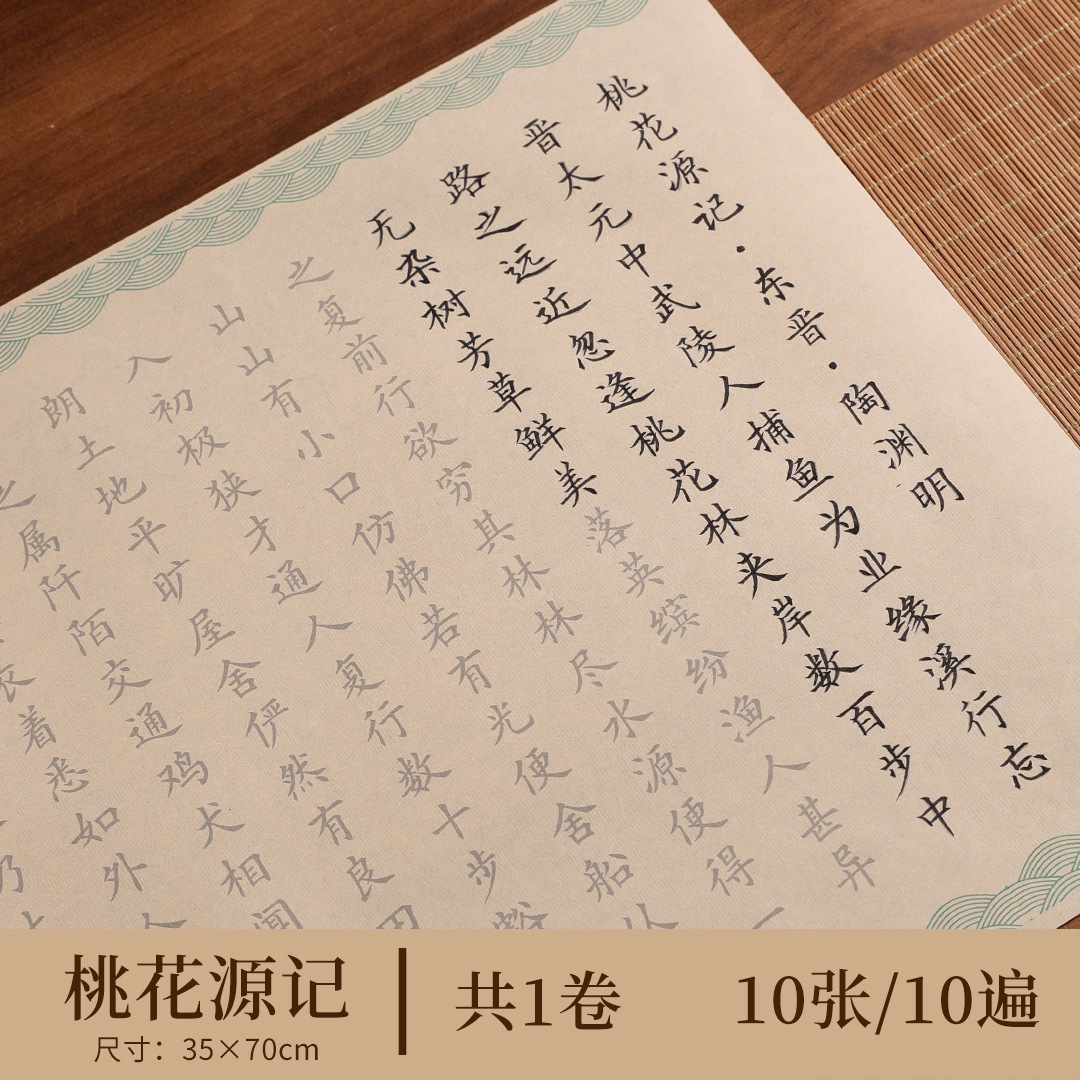 桃花源记·东晋·陶渊明
晋太元中武陵人捕鱼为业缘溪行忘
路之远近忽逢桃花林夹岸数百步中
无杂树芳草鲜美落英缤纷渔人甚异
之复前行欲穷其林林尽水源便得一
山山有小口仿佛若有光便舍船从
入初极狭才通人复行数十步豁
朗土地平旷屋舍俨然有良田
之属阡陌交通鸡犬相闻
衣着悉如外人
乃
桃花源记
尺寸：35×70cm
共1卷
10张/10遍